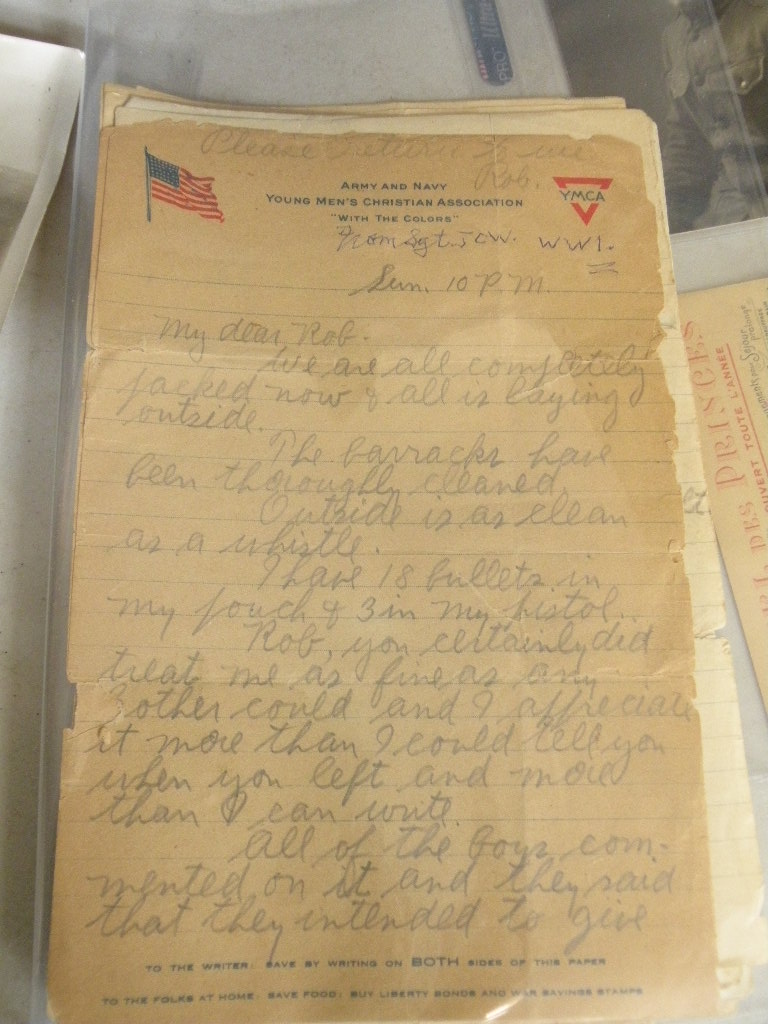 Please return to me
Rob.
ARMY AND NAVY
YOUNG MEN'S CHRISTIAN ASSOCIATION
"WITH THE COLORS"
YMCA
From Sgt. J.C.W. WW1.
Sun. 10 P.M.
My dear Rob-
We are all completely
packed now & all is laying
outside.
The barracks have
been thoroughly cleaned
Outside is as clean
as a whistle.
I have 18 bullets in
my pouch & 3 in my pistol.
Rob, you certainly did
treat me as fine as any
Bother could and I appreciate
it more than I could tell you
when you left and more
than I can write.
All of the boys com-
mented on it and they said
that they intended to give
TO THE WRITER: SAVE BY WRITING ON BOTH SIDES OF THIS PAPER
TO THE FOLKS AT HOME: SAVE FOOD: BUY LIBERTY BONDS AND WAR SAVINGS STAMPS
PRO
DES PRINCES.
OUVERT TOUTE L'ANNÉE
Séjour prolongé